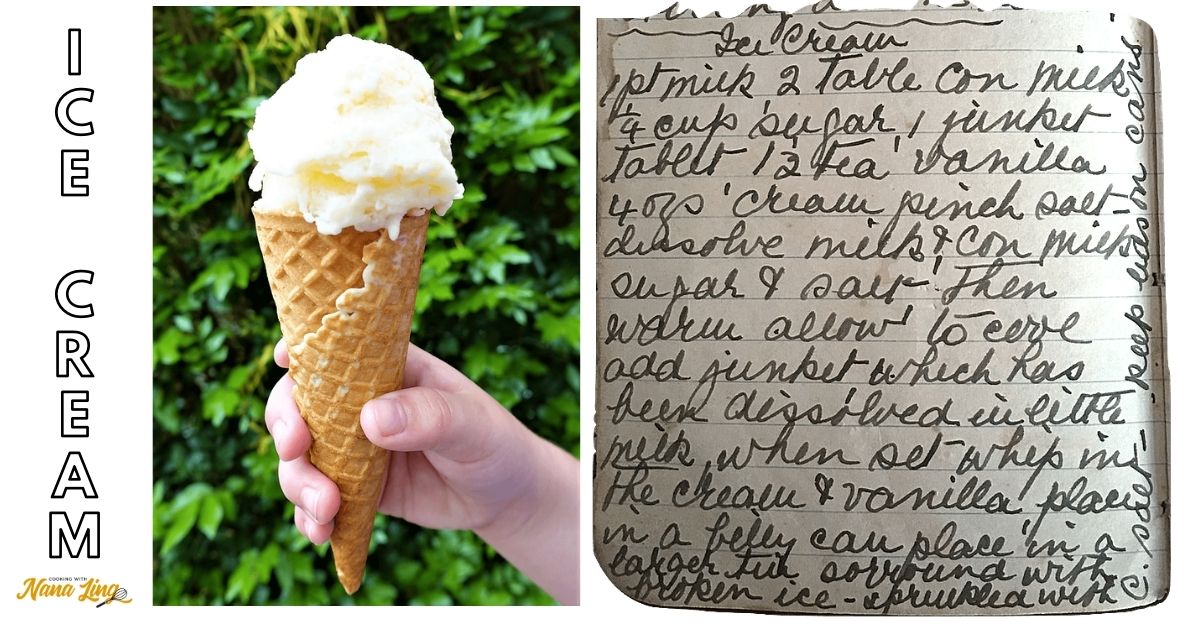 ICE CREAM
COOKING WITH
Nana Ling
Ice Cream
1pt milk 2 table con milk
1/4 cup sugar, 1 junket
tablet 1/2 tea vanilla
4ozs cream pinch salt
dissolve milk & con milk
sugar & salt then
warm allow to cool
add junket which has
been dissolved in little
milk when set whip in
the cream & vanilla place
in a billy can place in a
larger tin sorround with
broken ice - sprinkled with
C. salt - keep
cans